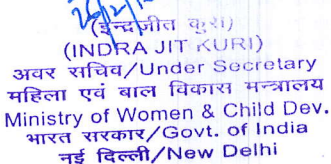 (इन्द्रजीत कुरी)
(INDRA JIT KURI)
अवर सचिव/Under Secretary
महिला एवं बाल विकास मन्त्रालय
Ministry of Women & Child Dev.
भारत सरकार/Govt. of India
नई दिल्ली/New Delhi